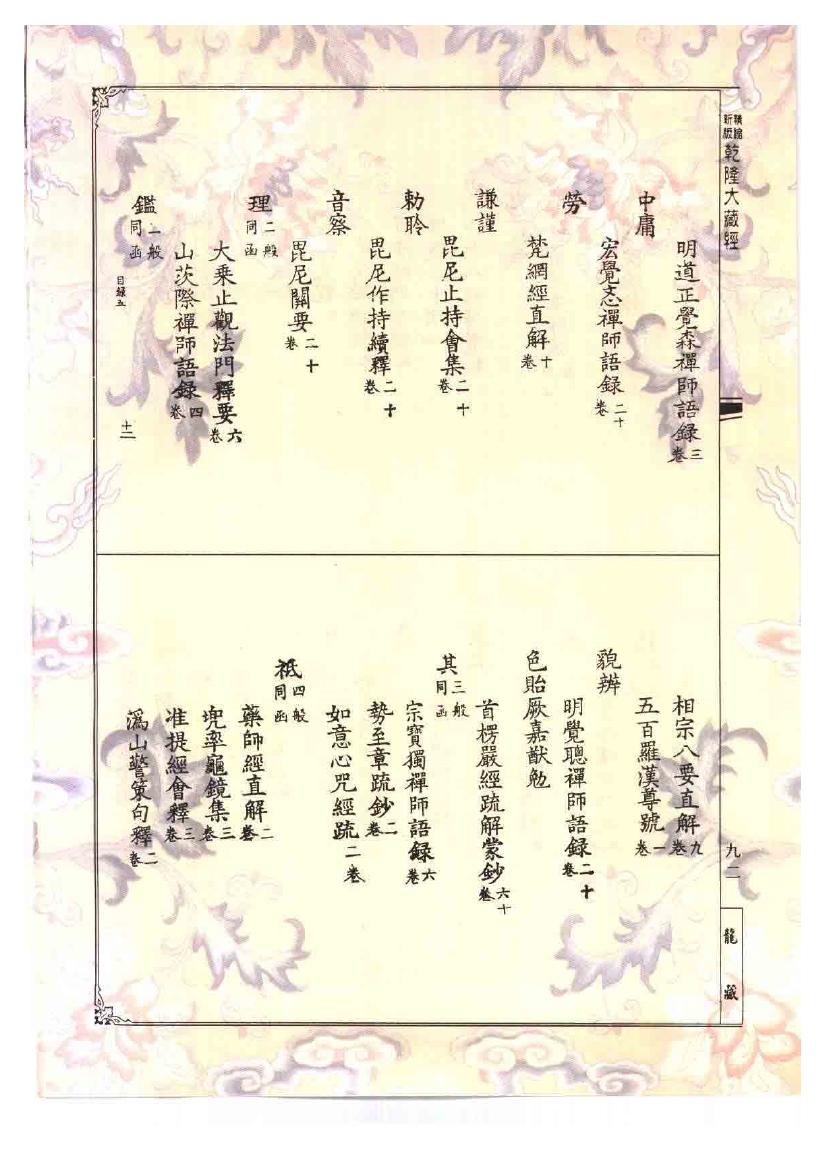 精縮
新版
乾隆大藏經
明道正覺森禪師語録三卷
中庸
宏覺忞禪師語録二十卷
勞
梵網經直解十卷
謙謹
毘尼止持會集二十卷
勅聆
毘尼作持續釋二十卷
音察
毘尼關要二十卷
理二般同函
大乘止觀法門釋要六卷
山茨際禪師語録四卷
鑑一般同函
目録五
十二
相宗八要直解九卷
五百羅漢尊號一卷
貌辨
明覺聰禪師語録二十卷
色貽厥嘉猷勉
首楞嚴經疏解蒙鈔六十卷
其三般同函
宗寶獨禪師語録六卷
勢至章疏鈔二卷
如意心咒經疏二卷
祗四般同函
藥師經直解二卷
兜率龜鏡集三卷
准提經會釋三卷
溈山警策句釋二卷
九二
龍藏